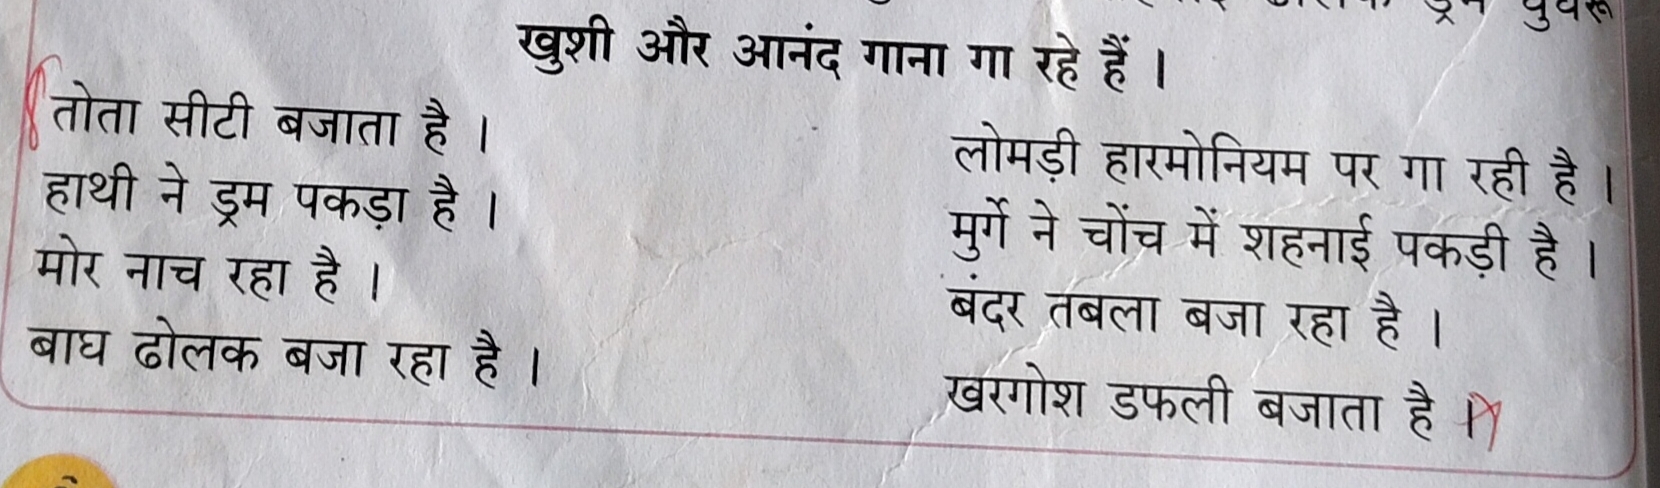 खुशी और आनंद गाना गा रहे हैं ।
तोता सीटी बजाता है ।
हाथी ने ड्रम पकड़ा है ।
मोर नाच रहा है ।
बाघ ढोलक बजा रहा है ।
लोमड़ी हारमोनियम पर गा रही है ।
मुर्गे ने चोंच में शहनाई पकड़ी है ।
बंदर तबला बजा रहा है ।
खरगोश डफली बजाता है ।